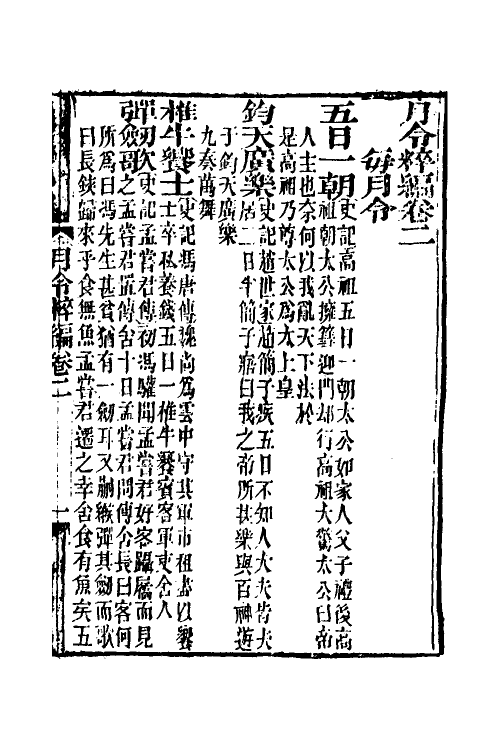 月令粹編卷二
每月令
五日一朝
史記高祖五日一朝太公如家人父子禮後高
祖朝太公擁篲迎門却行高祖大驚太公曰帝
人主也奈何以我亂天下法於
是高祖乃尊太公爲太上皇
鈞天廣樂
史記趙世家趙簡子疾五日不知人大夫皆
居二日半簡子寤曰我之帝所甚樂與百神遊
于鈞天廣樂
九奏萬舞
椎牛饗士
史記馮唐傳魏尚爲雲中守其軍市租盡以饗
士卒私養錢五日一椎牛饗賓客軍吏舍人
彈劒歌
史記孟嘗君傳初馮驩聞孟嘗君好客躡屩而見
之孟嘗君置傳舍十日孟嘗君問傳舍長曰客何
所爲曰馮先生甚貧猶有一劒耳又蒯緱彈其劒而歌
曰長鋏歸來乎食無魚孟嘗君遷之幸舍食有魚矣五
月令粹編卷二
一